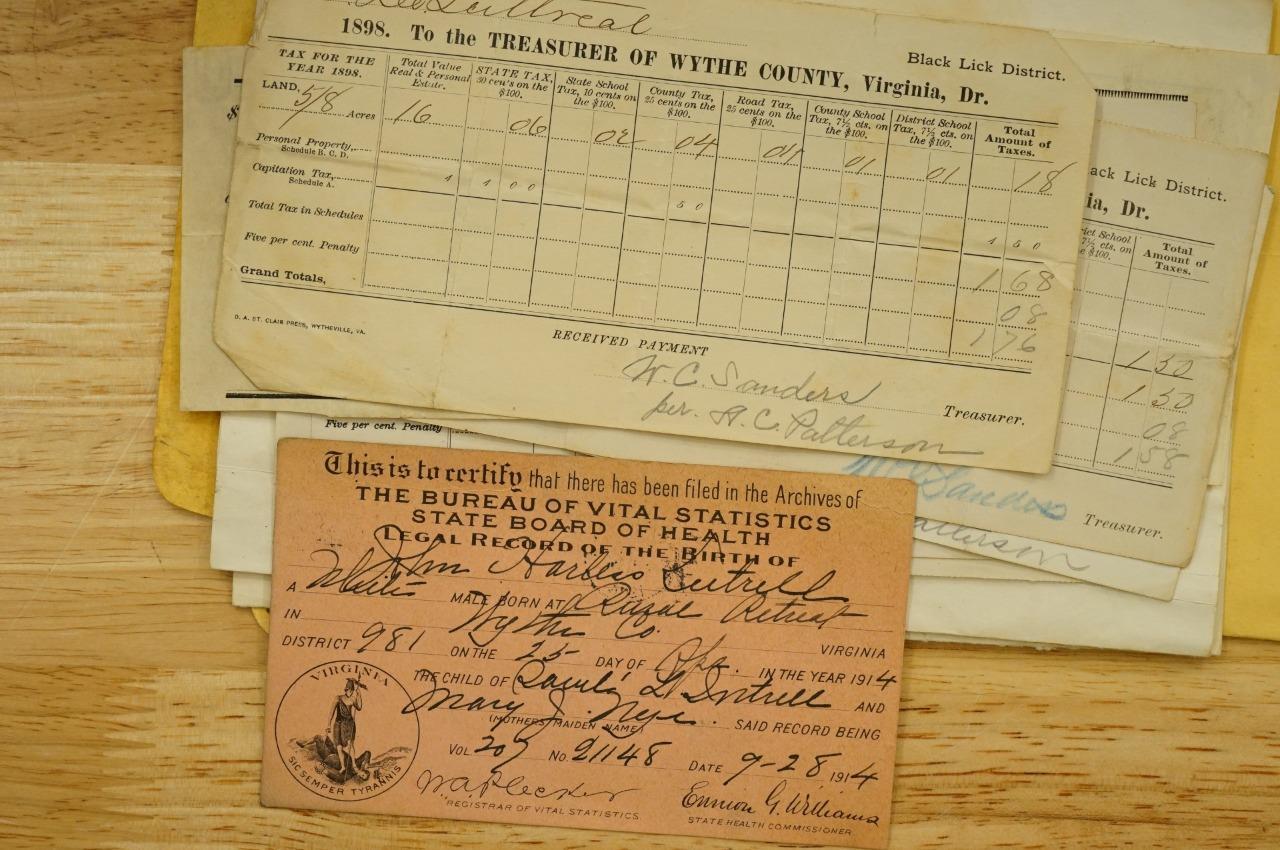 1898. To the TREASURER OF WYTHE COUNTY, Virginia, Dr.
Black Lick District.
TAX FOR THE YEAR 1898.
Total Value Real & Personal Estate.
STATE TAX, 30 cen's on the $100.
State School Tax, 10 cents on the $100.
County Tax, 25 cents on the $100.
Road Tax, 25 cents on the $100.
County School Tax, 7½ cts. on the $100.
District School Tax, 7½ cts. on the $100.
Total Amount of Taxes.
LAND, 5/8 Acres 16 06 02 04 04 01 01 18
Personal Property, Schedule B. C. D.
Capitation Tax, Schedule A. 1 1 00 50 1 50
Total Tax in Schedules 1 68
Five per cent. Penalty 08
Grand Totals, 1 76
D. A. ST. CLAIR PRESS, WYTHEVILLE, VA.
RECEIVED PAYMENT
W. C. Sanders
per. A. C. Patterson
Treasurer.
ack Lick District.
ia, Dr.
rict School
7½ cts. on
e $100.
Total Amount of Taxes.
1 50
1 50
08
1 58
Sanders
Treasurer.
atterson
Five per cent. Penalty
This is to certify that there has been filed in the Archives of
THE BUREAU OF VITAL STATISTICS
STATE BOARD OF HEALTH
LEGAL RECORD OF THE BIRTH OF
John Harless
A White MALE BORN AT Rural Retreat
IN Wythe Co. VIRGINIA
DISTRICT 981 ON THE 25 DAY OF IN THE YEAR 1914
THE CHILD OF AND
Mary J. SAID RECORD BEING
(MOTHERS MAIDEN NAME)
VOL 207 NO. 21148 DATE 9-28 1914
VIRGINIA
SIC SEMPER TYRANNIS
W.A. Plecker
REGISTRAR OF VITAL STATISTICS.
Ennion G. Williams
STATE HEALTH COMMISSIONER